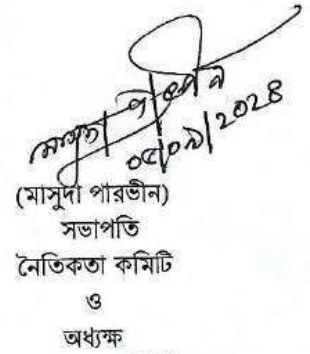 মাসুদা পারভীন
০৫|০৯|২০২৪
(মাসুদা পারভীন)
সভাপতি
নৈতিকতা কমিটি
ও
অধ্যক্ষ